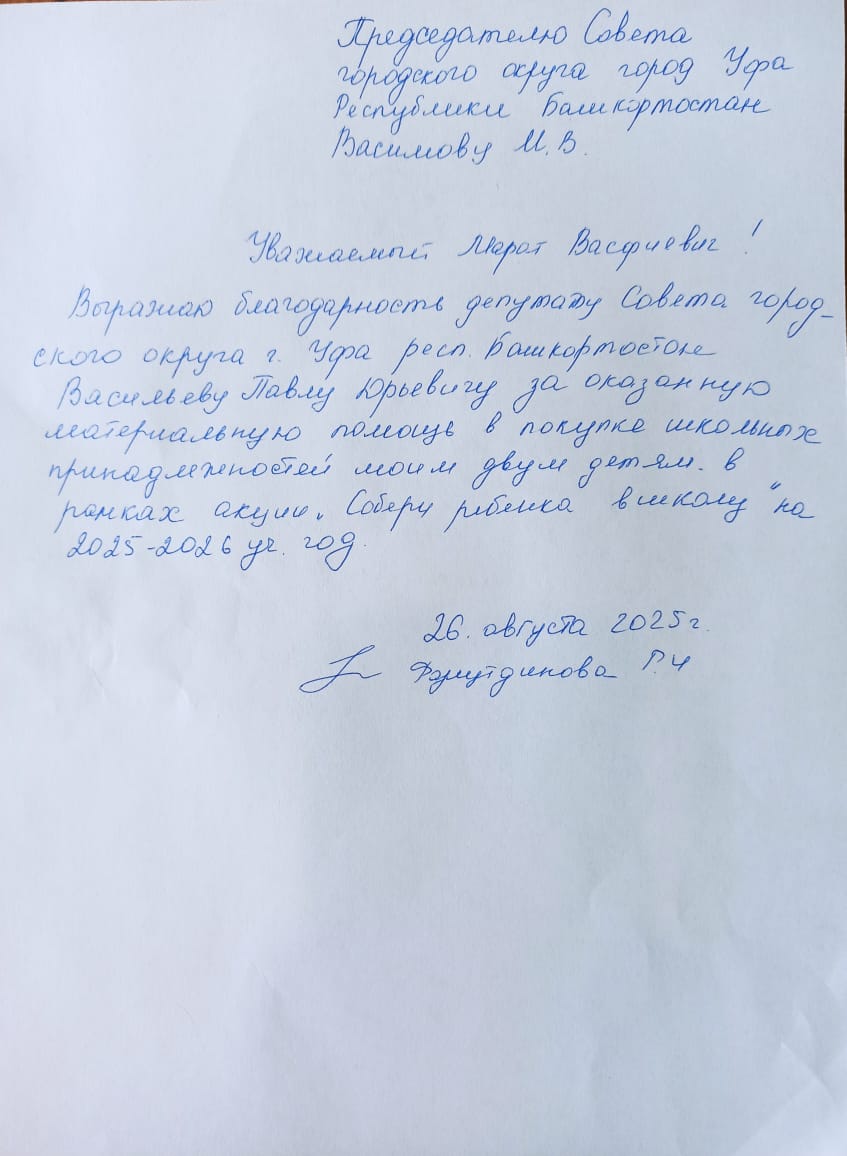 Председателю Совета
городского округа город Уфа
Республики Башкортостан
Васимову М.В.
Уважаемый Марат Васфиевич!
Выражаю благодарность депутату Совета город-
ского округа г. Уфа респ. Башкортостан
Васильеву Павлу Юрьевичу за оказанную
материальную помощь в покупке школьных
принадлежностей моим двум детям. в
рамках акции „Собери ребенка в школу" на
2025-2026 уч. год.
26. августа 2025 г.
Г.Ч